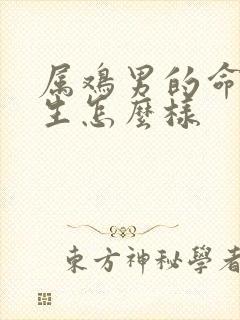 属鸡男的命
生怎麼樣
東方神秘學者